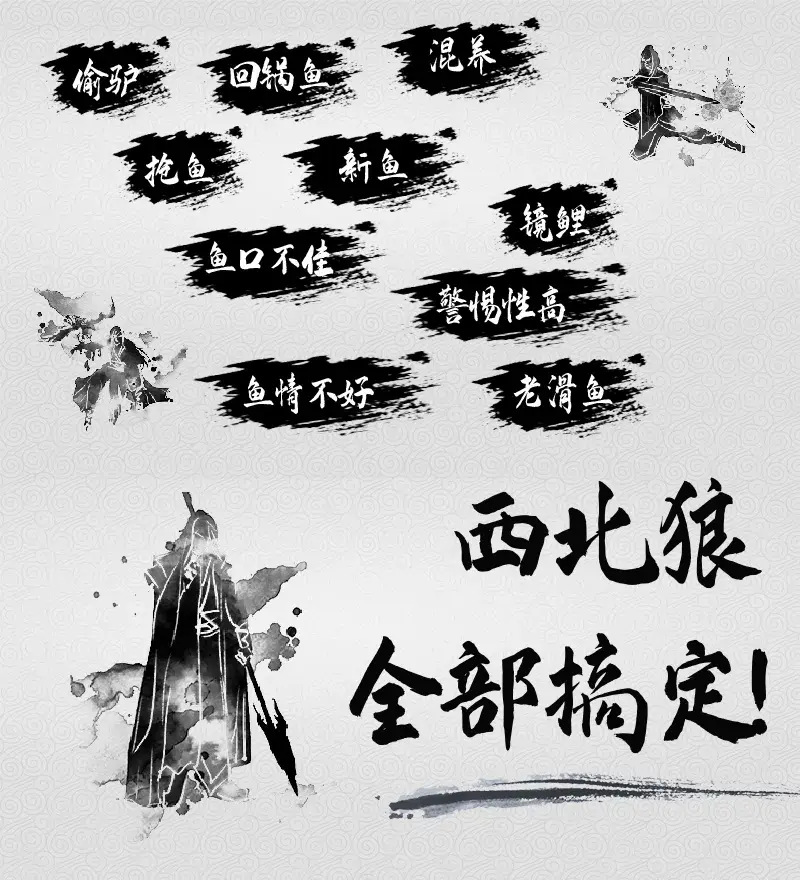 偷驴 回锅鱼 混养
抢鱼 新鱼
镜鲤
鱼口不佳
警惕性高
鱼情不好 老滑鱼
西北狼
全部搞定!